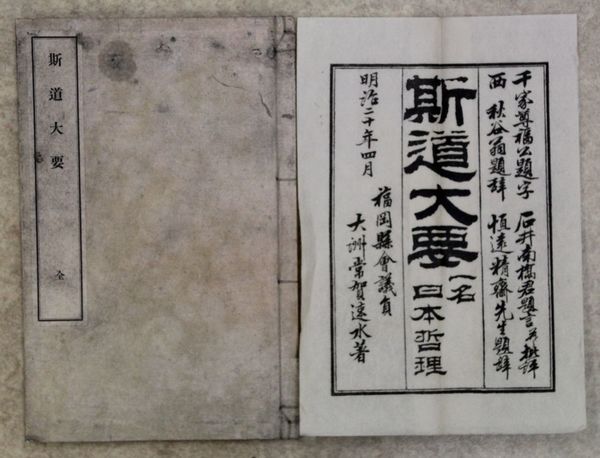 斯道大要 全
千家尊福公題字 石井南橋君題言并批評
西 秋谷翁題辞 恒遠精齋先生題辞
斯道大要 一名 日本哲理
明治二十年四月
福岡縣會議員
大洲常賀速水著